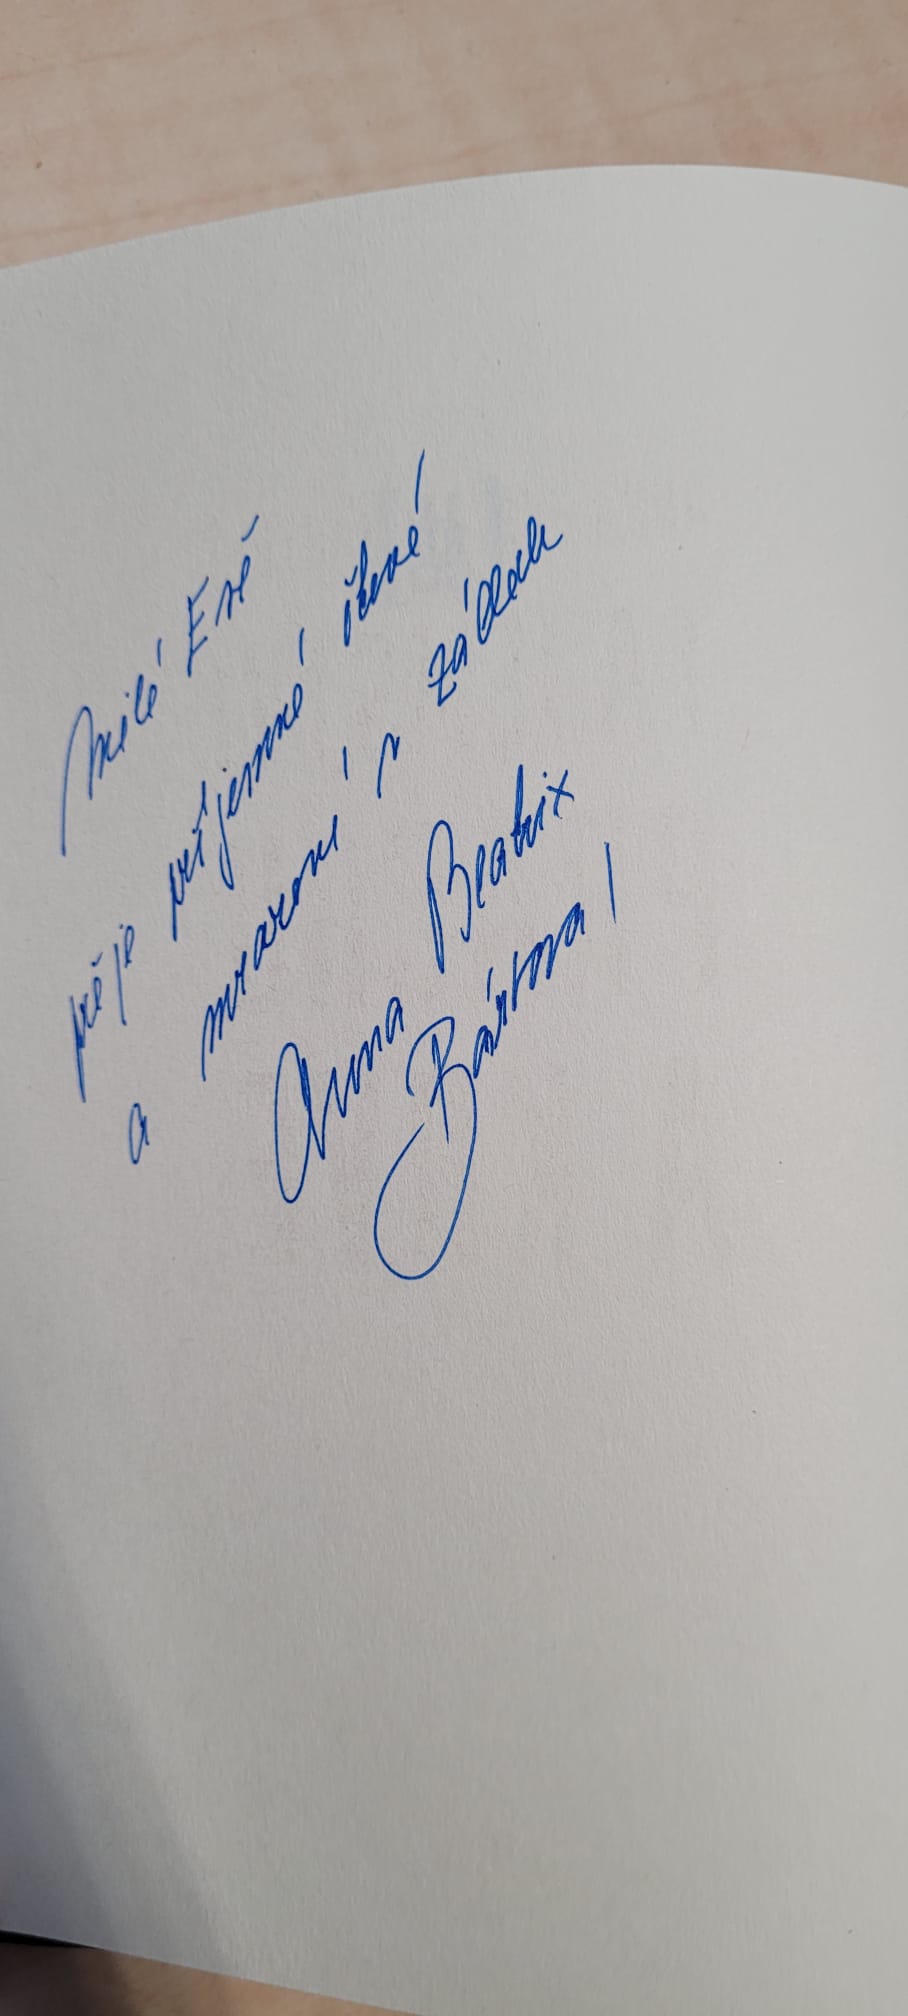 Milé Evě
přeje příjemné čtení
a mrazení v zádech
Anna Beatrix
Bártová